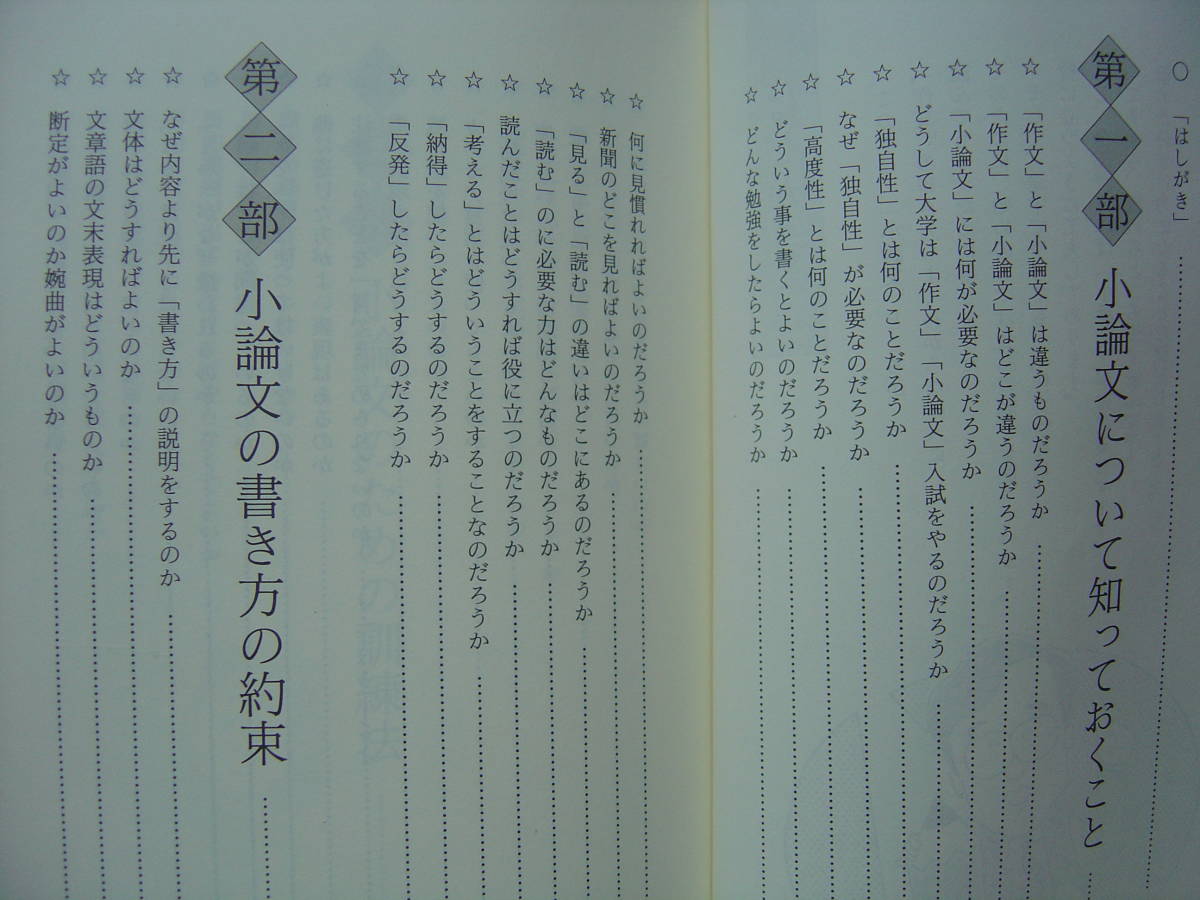 ○ 「はしがき」
第一部 小論文について知っておくこと
☆ 「作文」と「小論文」は違うものだろうか
☆ 「作文」と「小論文」はどこが違うのだろうか
☆ 「小論文」には何が必要なのだろうか
☆ どうして大学は「作文」「小論文」入試をやるのだろうか
☆ 「独自性」とは何のことだろうか
☆ なぜ「独自性」が必要なのだろうか
☆ 「高度性」とは何のことだろうか
☆ どういう事を書くとよいのだろうか
☆ どんな勉強をしたらよいのだろうか
☆ 何に見慣れればよいのだろうか
☆ 新聞のどこを見ればよいのだろうか
☆ 「見る」と「読む」の違いはどこにあるのだろうか
☆ 「読む」のに必要な力はどんなものだろうか
☆ 読んだことはどうすれば役に立つのだろうか
☆ 「考える」とはどういうことをすることなのだろうか
☆ 「納得」したらどうするのだろうか
☆ 「反発」したらどうするのだろうか
第二部 小論文の書き方の約束
☆ なぜ内容より先に「書き方」の説明をするのか
☆ 文体はどうすればよいのか
☆ 文章語の文末表現はどういうものか
☆ 断定がよいのか婉曲がよいのか